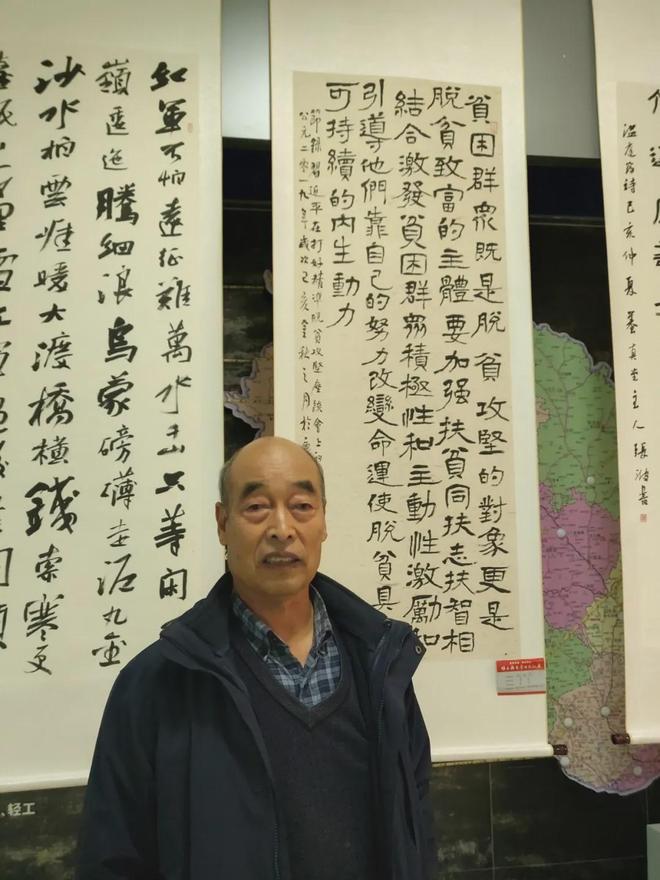 溫庭筠詩己亥仲夏養真堂主人張書
貧困群眾既是脫貧攻堅的對象更是
脫貧致富的主體要加强扶貧同扶志扶智相
結合激發貧困群眾積極性和主動性激勵和
引導他們靠自己的努力改變命運使脫貧具
可持續的内生動力
節錄習近平在打好精準脫貧攻堅座談會上
公元二零一九年歲次己亥金秋之月於
紅軍不怕遠征難萬水千山只等閑
嶺逶迤騰細浪烏蒙磅礴走泥丸金
沙水拍雲崖暖大渡橋橫鐵索寒更
、轻工